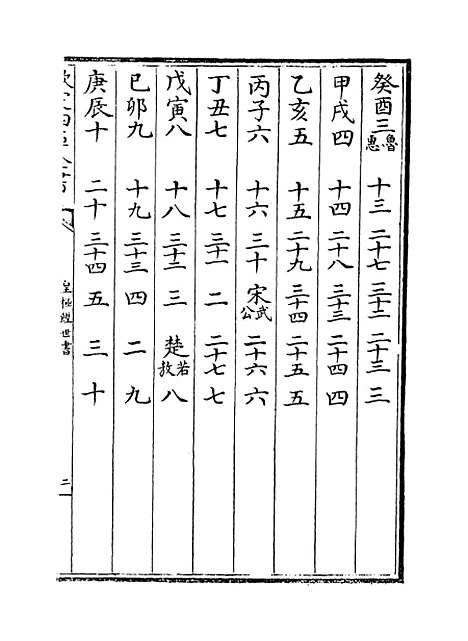 癸酉三 魯惠 十三 二十七 三十二 二十三 三
甲戌四 十四 二十八 三十三 二十四 四
乙亥五 十五 二十九 三十四 二十五 五
丙子六 十六 三十 宋武公 二十六 六
丁丑七 十七 三十一 二 二十七 七
戊寅八 十八 三十二 三 楚若敖 八
已卯九 十九 三十三 四 二 九
庚辰十 二十 三十四 五 三 十
皇極經世書
二